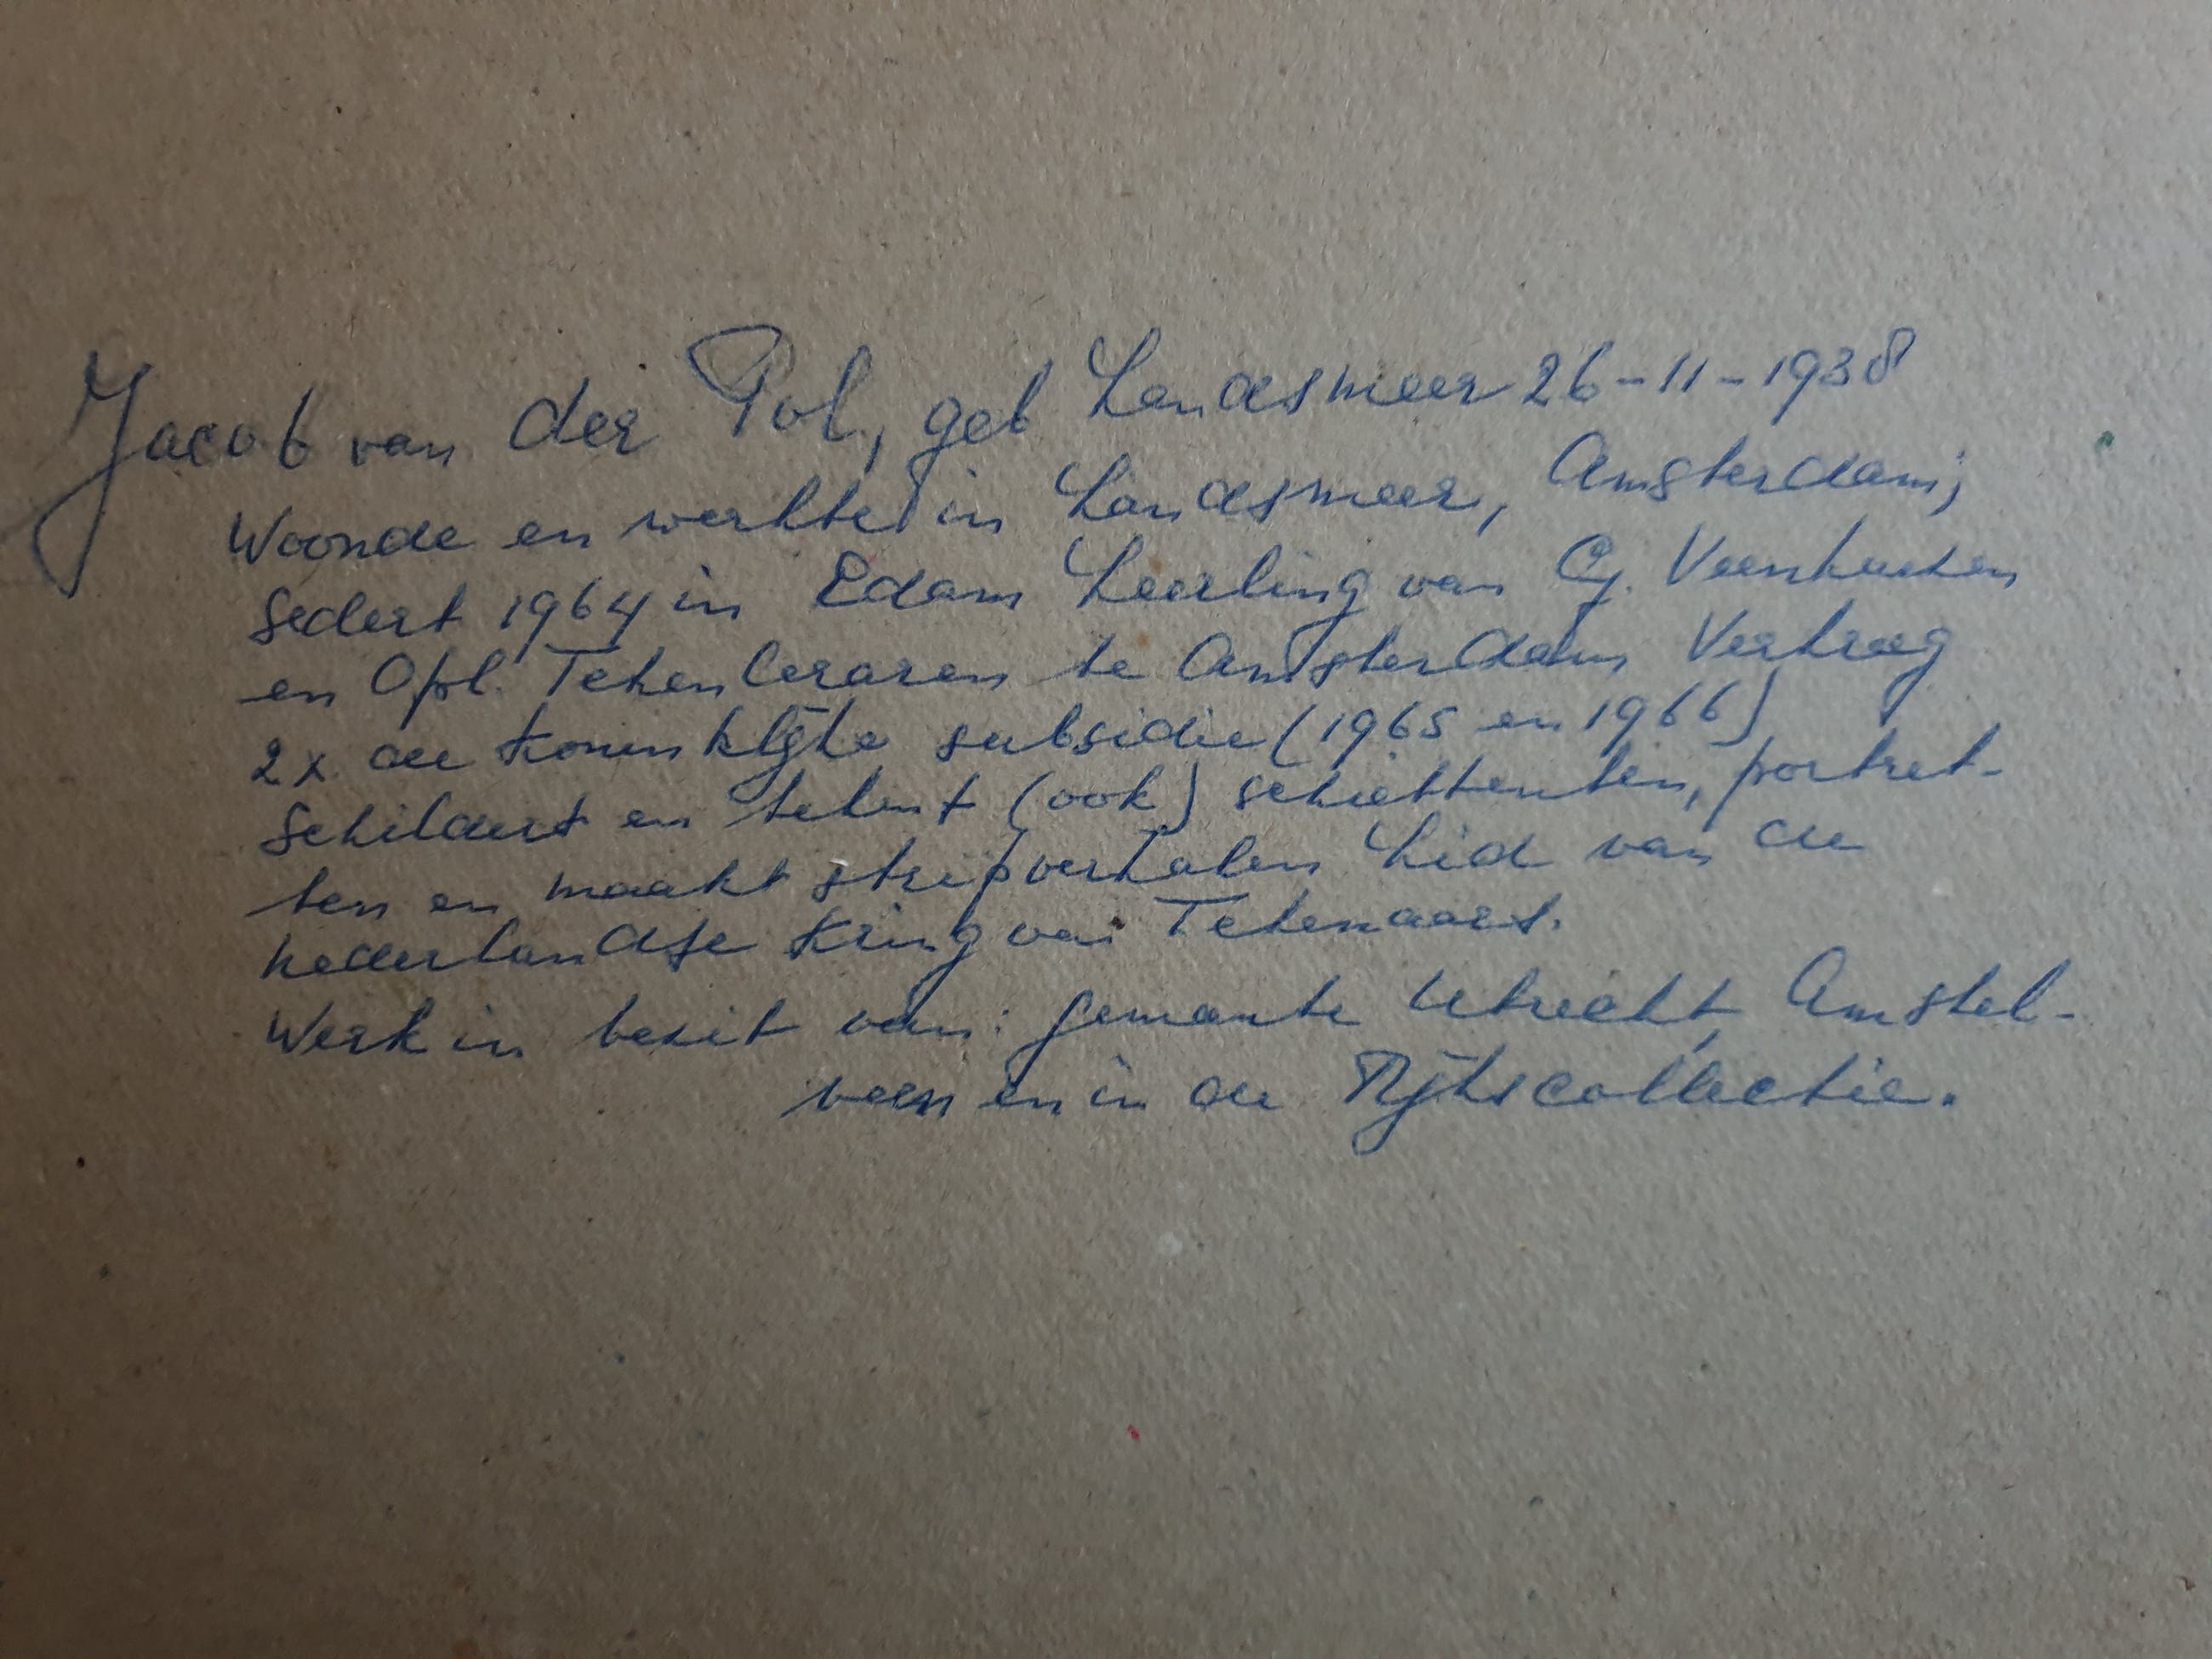 Jacob van der Pol, geb Landsmeer 26-11-1938
Woonde en werkte in Landsmeer, Amsterdam;
Sedert 1964 in Edam Leerling van Cj. Veenhuizen
en Opl. Tekenleraren te Amsterdam Verkreeg
2x de koninklijke subsidie (1965 en 1966)
Schildert en tekent (ook) schiettenten, portret-
ten en maakt stripverhalen Lid van de
nederlandse Kring van Tekenaars.
Werk in bezit van: gemeente Utrecht, Amstel-
veen en in de Rijkscollectie.